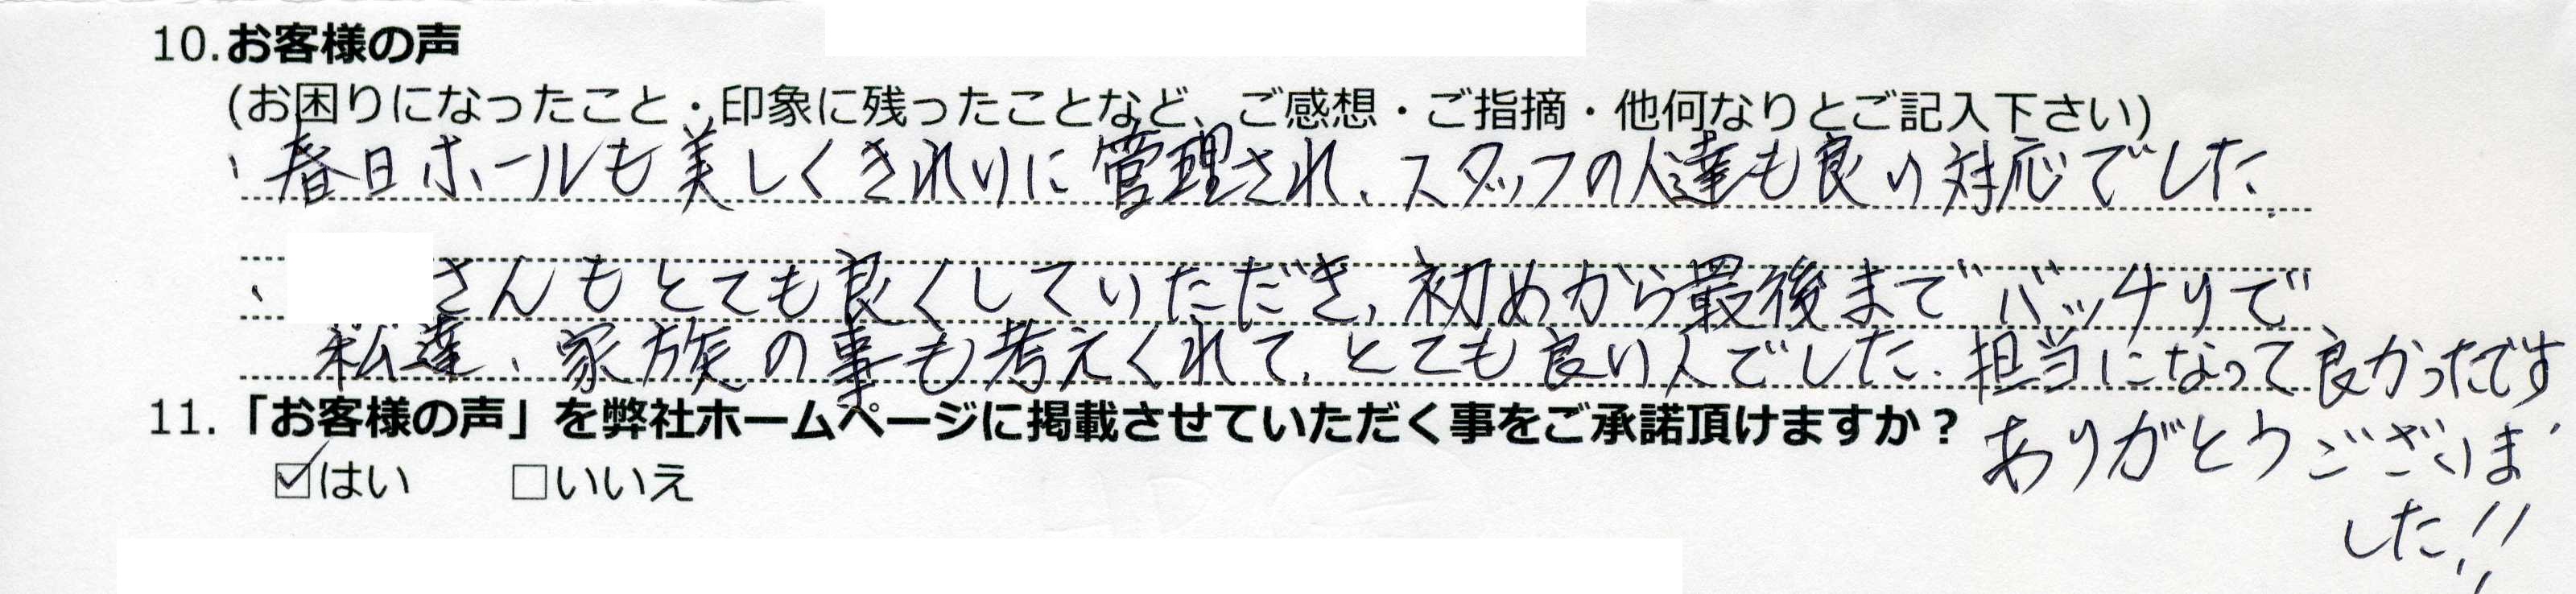 10.お客様の声
(お困りになったこと・印象に残ったことなど、ご感想・ご指摘・他何なりとご記入下さい)
、春日ホールも美しくきれいに管理され、スタッフの人達も良い対応でした.
、さんもとても良くしていただき,初めから最後までバッチリで
私達、家族の事も考えくれて、とても良い人でした.担当になって良かったです
11.「お客様の声」を弊社ホームページに掲載させていただく事をご承諾頂けますか？
ありがとうございま
☑はい　□いいえ
した!!